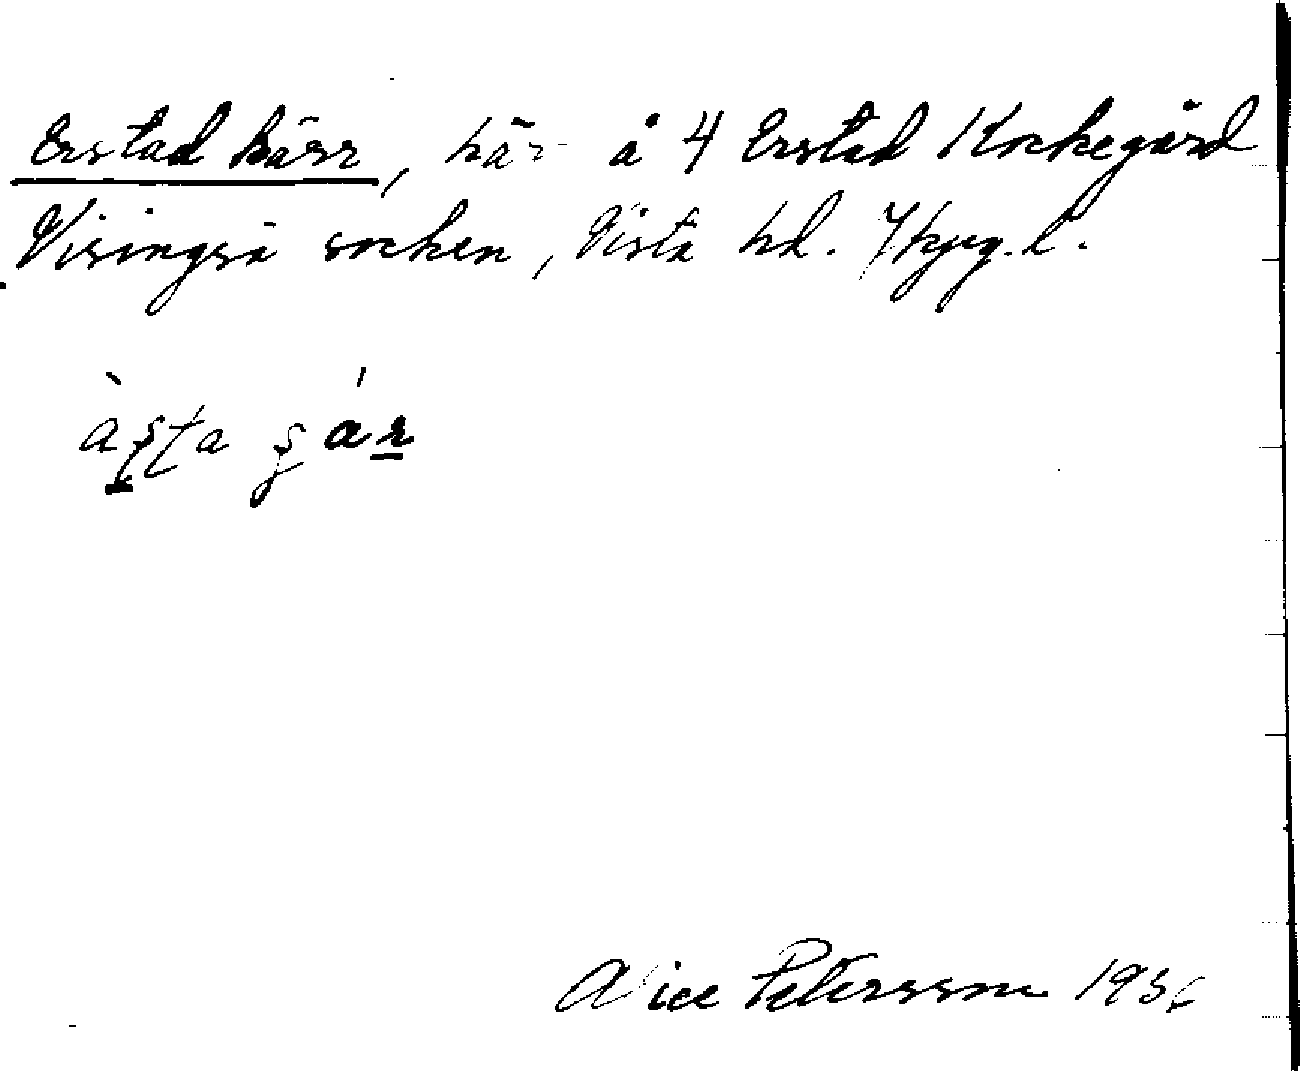 Erstad kärr, kärr å 4 Erstad Kockegård
Visingsö socken, Vista hd. Jkpg. l.
Alice Petersson 1936